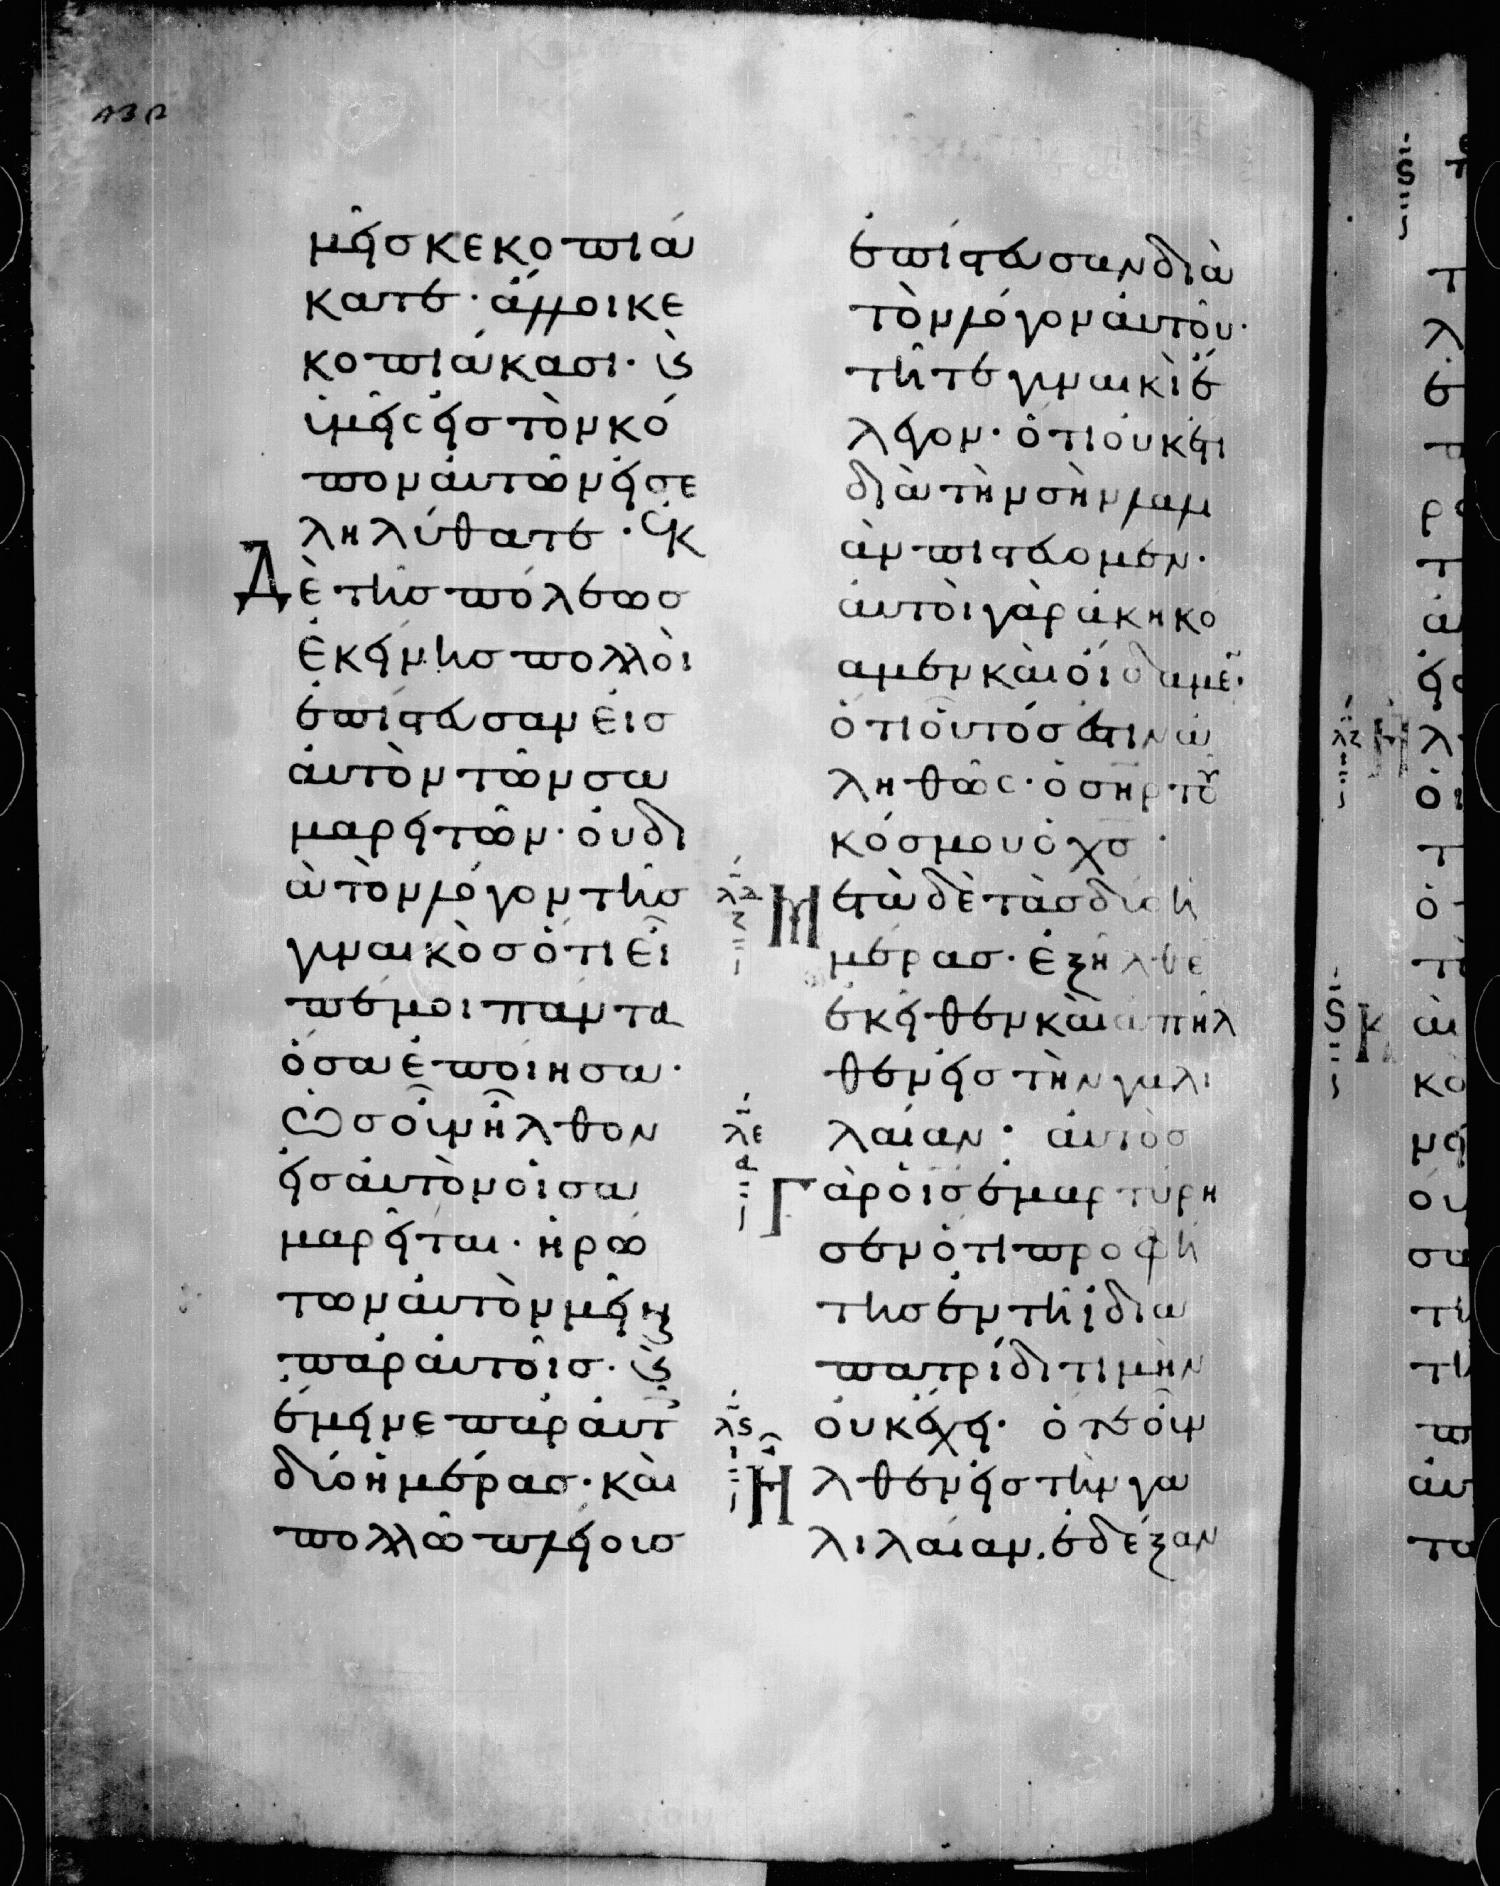 μεῖσ κεκοπιά
κατε· ἄλλοι κε
κοπιάκασι· κ(αὶ)
ὑμεῖς εἰσ τὸν κό
πον ἀυτῶν εἰσε
ληλύθατε· Ἐκ
Δὲ τῆσ πόλεωσ
ἐκείνησ πολλοὶ
ἐπίστευσαν ἐισ
ἀυτὸν τῶν σα
μαρειτῶν· ὀυ δι
ὰ τὸν λόγον τῆσ
γυναικὸσ ὅτι εἶ
πέ μοι πάντα
ὅσα ἐποίησα·
Ὡσ οῦν ἦλθον
εἰσ ἀυτὸν οἱ σα
μαρεῖται· ἠρώ
των ἀυτὸν μεῖναι
παρ ἀυτοῖσ· κ(αὶ)
ἔμεινε παρ ἀυτ
δύο ἡμέρασ· καὶ
πολλῶ πλείουσ
ἐπίστευσαν διὰ
τὸν λόγον ἀυτοῦ·
τῆ τε γυναικὶ ἔ
λεγον· ὅτι ὀυκέτι
διὰ τὴν σὴν λαλι
ὰν πιστεύομεν·
ἀυτοὶ γὰρ ἀκηκό
αμεν καὶ οἴδαμε̄·
ὅτι ὁῦτόσ ἐστιν ἀ
ληθῶς· ὁ σηρ τοῦ
κόσμου ὁ χσ·
λδ
ζ
Μετὰ δὲ τὰσ δύο ἡ
μέρασ· ἐξῆλθε
ἐκεῖθεν καὶ ἀπῆλ
θεν εἰσ τὴν γαλι
λαίαν· ἀυτὸσ
λε
α
Γὰρ ὁ ισ ἐμαρτύρη
σεν ὅτι προφή
τησ ἐν τῆ ἰδία
πατρίδι τιμὴν
ὀυκ ἔχει· ὅτε οῦν
λς
Ἦλθεν εἰσ τὴν γα
λιλαίαν. ἐδέξαν